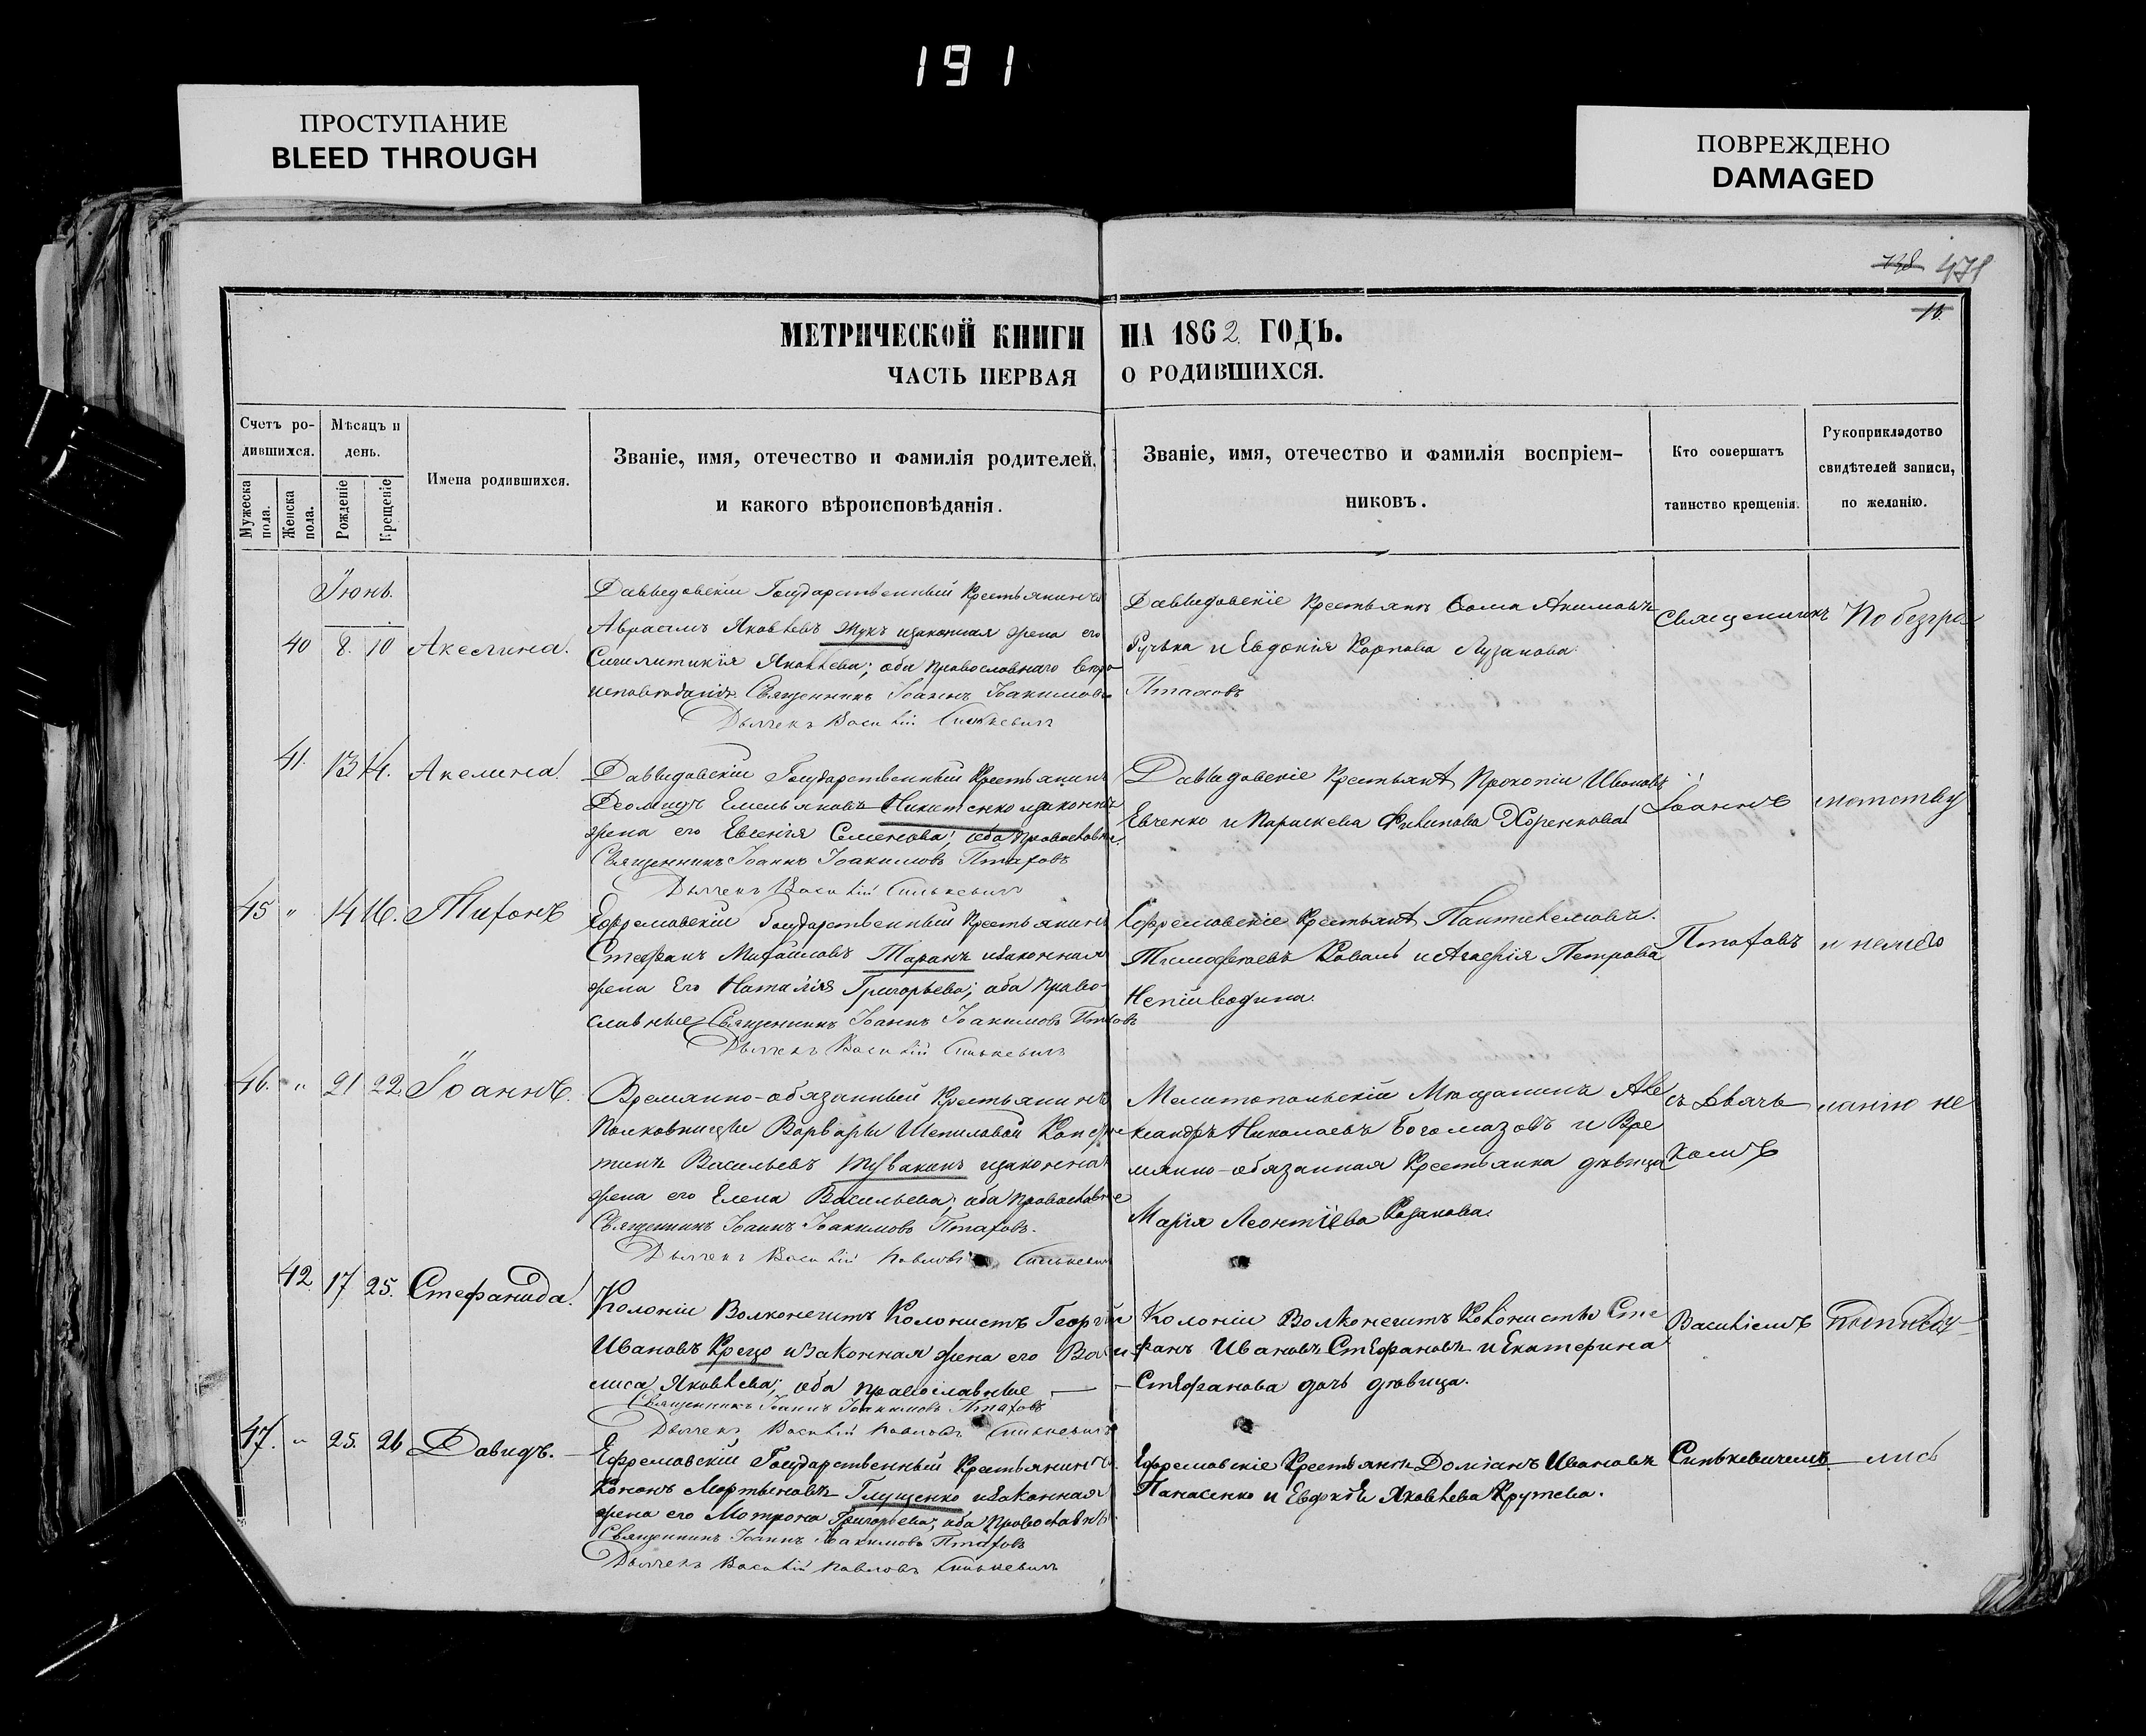 191
ПРОСТУПАНИЕ
BLEED THROUGH
ПОВРЕЖДЕНО
DAMAGED
138 471
МЕТРИЧЕСКОЙ КНИГИ НА 1862 ГОДЪ.
ЧАСТЬ ПЕРВАЯ О РОДИВШИХСЯ.
Счетъ ро-
дившихся.
Мужеска
пола.
Женска
пола.
Мѣсяцъ и
день.
Рожденіе
Крещеніе
Имена родившихся.
Званіе, имя, отечество и фамилія родителей,
и какого вѣроисповѣданія.
Званіе, имя, отечество и фамилія воспріем-
никовъ.
Кто совершатъ
таинство крещенія.
Рукоприкладство
свидѣтелей записи,
по желанію.
Іюнь.
40 8. 10 Акелина.
Давыдовскій Государственный Крестьянинъ
Авраамъ Яковлевъ Жукъ изаконная жена его
Яковлева; оба православнаго вѣро
исповѣданія. Священникъ Іоаннъ Іоакимовъ
Птаховъ
Дьячекъ Василій Синькевичъ
Давыдовскіе Крестьяне Ѳома Акимовъ
и Евдокія Карпова Лузанова
Священникъ
По безгра
41. 13 14. Акелина.
Давыдовскій Государственный Крестьянинъ
Емельяновъ Никитенко изаконна
жена его Евгенія Семенова; оба православн.
Священникъ Іоаннъ Іоакимовъ Птаховъ
Дьячекъ Василій Синькевичъ
Давыдовскіе Крестьяне Прокопій Ивановъ
Евченко и Параскева Филипова Хоренкова
Іоаннъ
мотству
45 " 14 16. Тихонъ
Ефремовскій Государственный Крестьянинъ
Стефанъ Михайловъ Таранъ изаконная
жена его Наталія Григорьева; оба право-
славные Священникъ Іоаннъ Іоакимовъ Птаховъ
Дьячекъ Василій Синькевичъ
Ефремовскіе Крестьяне Пантелемонъ
Тимофеевъ Коваль и Агафія Петрова
Непійводина.
Птаховъ
и немего
46. " 21 22 Іоаннъ.
Времянно-обязанный Крестьянинъ
Полковницы Варвары Шепиловой Констан
тинъ Васильевъ изаконная
жена его Елена Васильева; оба православные
Священникъ Іоаннъ Іоакимовъ Птаховъ.
Дьячекъ Василій Павловъ Синькевичъ
Мелитопольскій Мѣщанинъ Але
ксандръ Николаевъ Богомазовъ и Вре
мянно-обязанная Крестьянка дѣвица
Марія Леонтіева Козакова.
съ Дьяч
комъ
ланію не
42 17 25. Стефанида.
Колоніи Волконешть Колонистъ Георгій
Ивановъ Крецо изаконная жена его Васи
лиса Яковлева; оба православные —
Священникъ Іоаннъ Іоакимовъ Птаховъ
Дьячекъ Василій Павловъ Синькевичъ
Колоніи Волконешть Колонисты Сте
фанъ Ивановъ Стефановъ и Екатерина
Стефанова дочь дѣвица.
Василіемъ
подписы
47. " 25. 26 Давидъ. —
Ефремовскій Государственный Крестьянинъ
Кононъ Мартыновъ Глущенко изаконная
жена его Мотрона Григорьева; оба православн.
Священникъ Іоаннъ Іоакимовъ Птаховъ
Дьячекъ Василій Павловъ Синькевичъ
Ефремовскіе Крестьяне Доміанъ Ивановъ
Панасенко и Евдокія Яковлева Крутева.
Синькевичемъ
лись